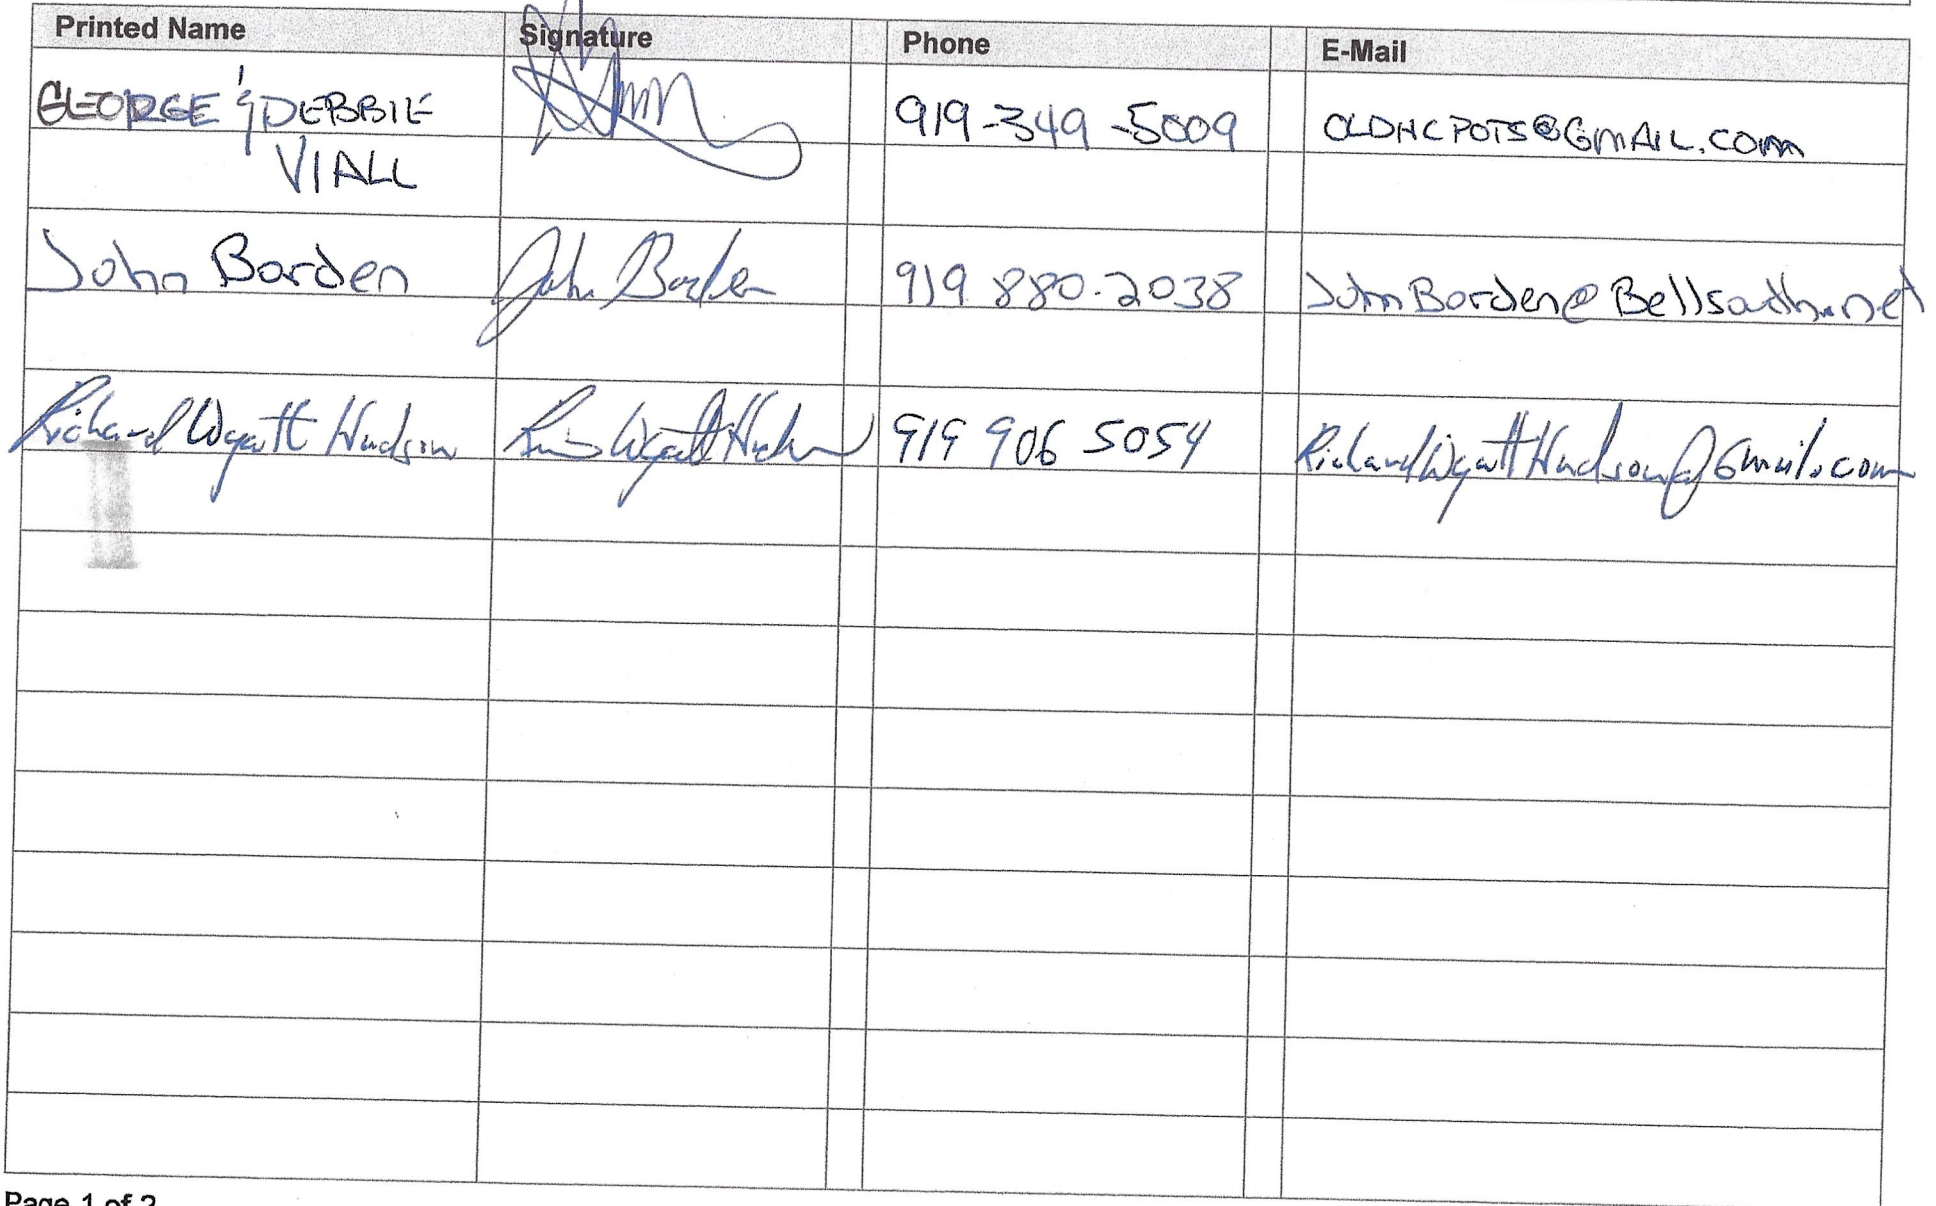 Printed Name Signature Phone E-Mail
GEORGE & DEBBIE 919-349-5009 OLDNCPOTS@GMAIL.COM
VIALL
John Borden John Borden 919 880-2038 JohnBorden@Bellsouth.net
Richard Wyatt Hudson 919 906 5054 RichardWyattHudson@Gmail.com
Page 1 of 2